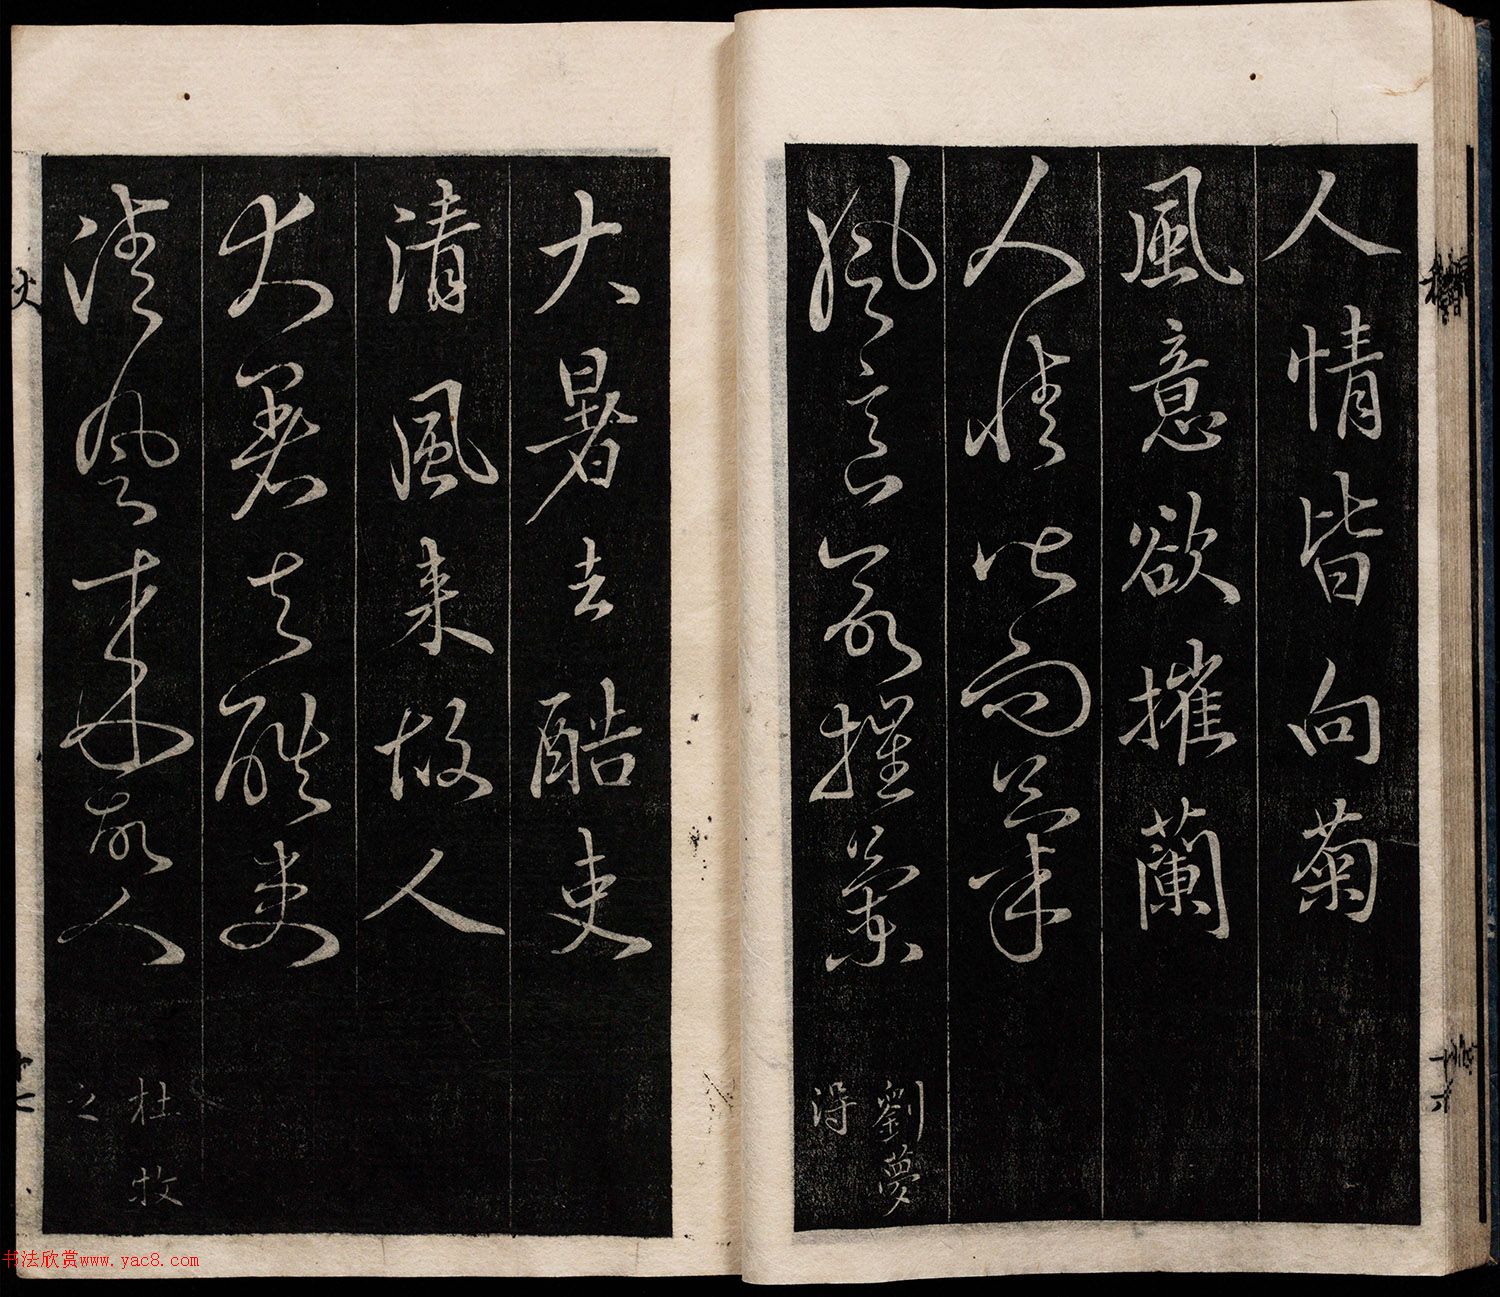 人情皆向菊
風意欲摧蘭
人情皆向菊
風意欲摧蘭
劉夢
得
大暑去酷吏
清風来故人
大暑去酷吏
清風来故人
杜牧
之
书法欣赏www.yac8.com